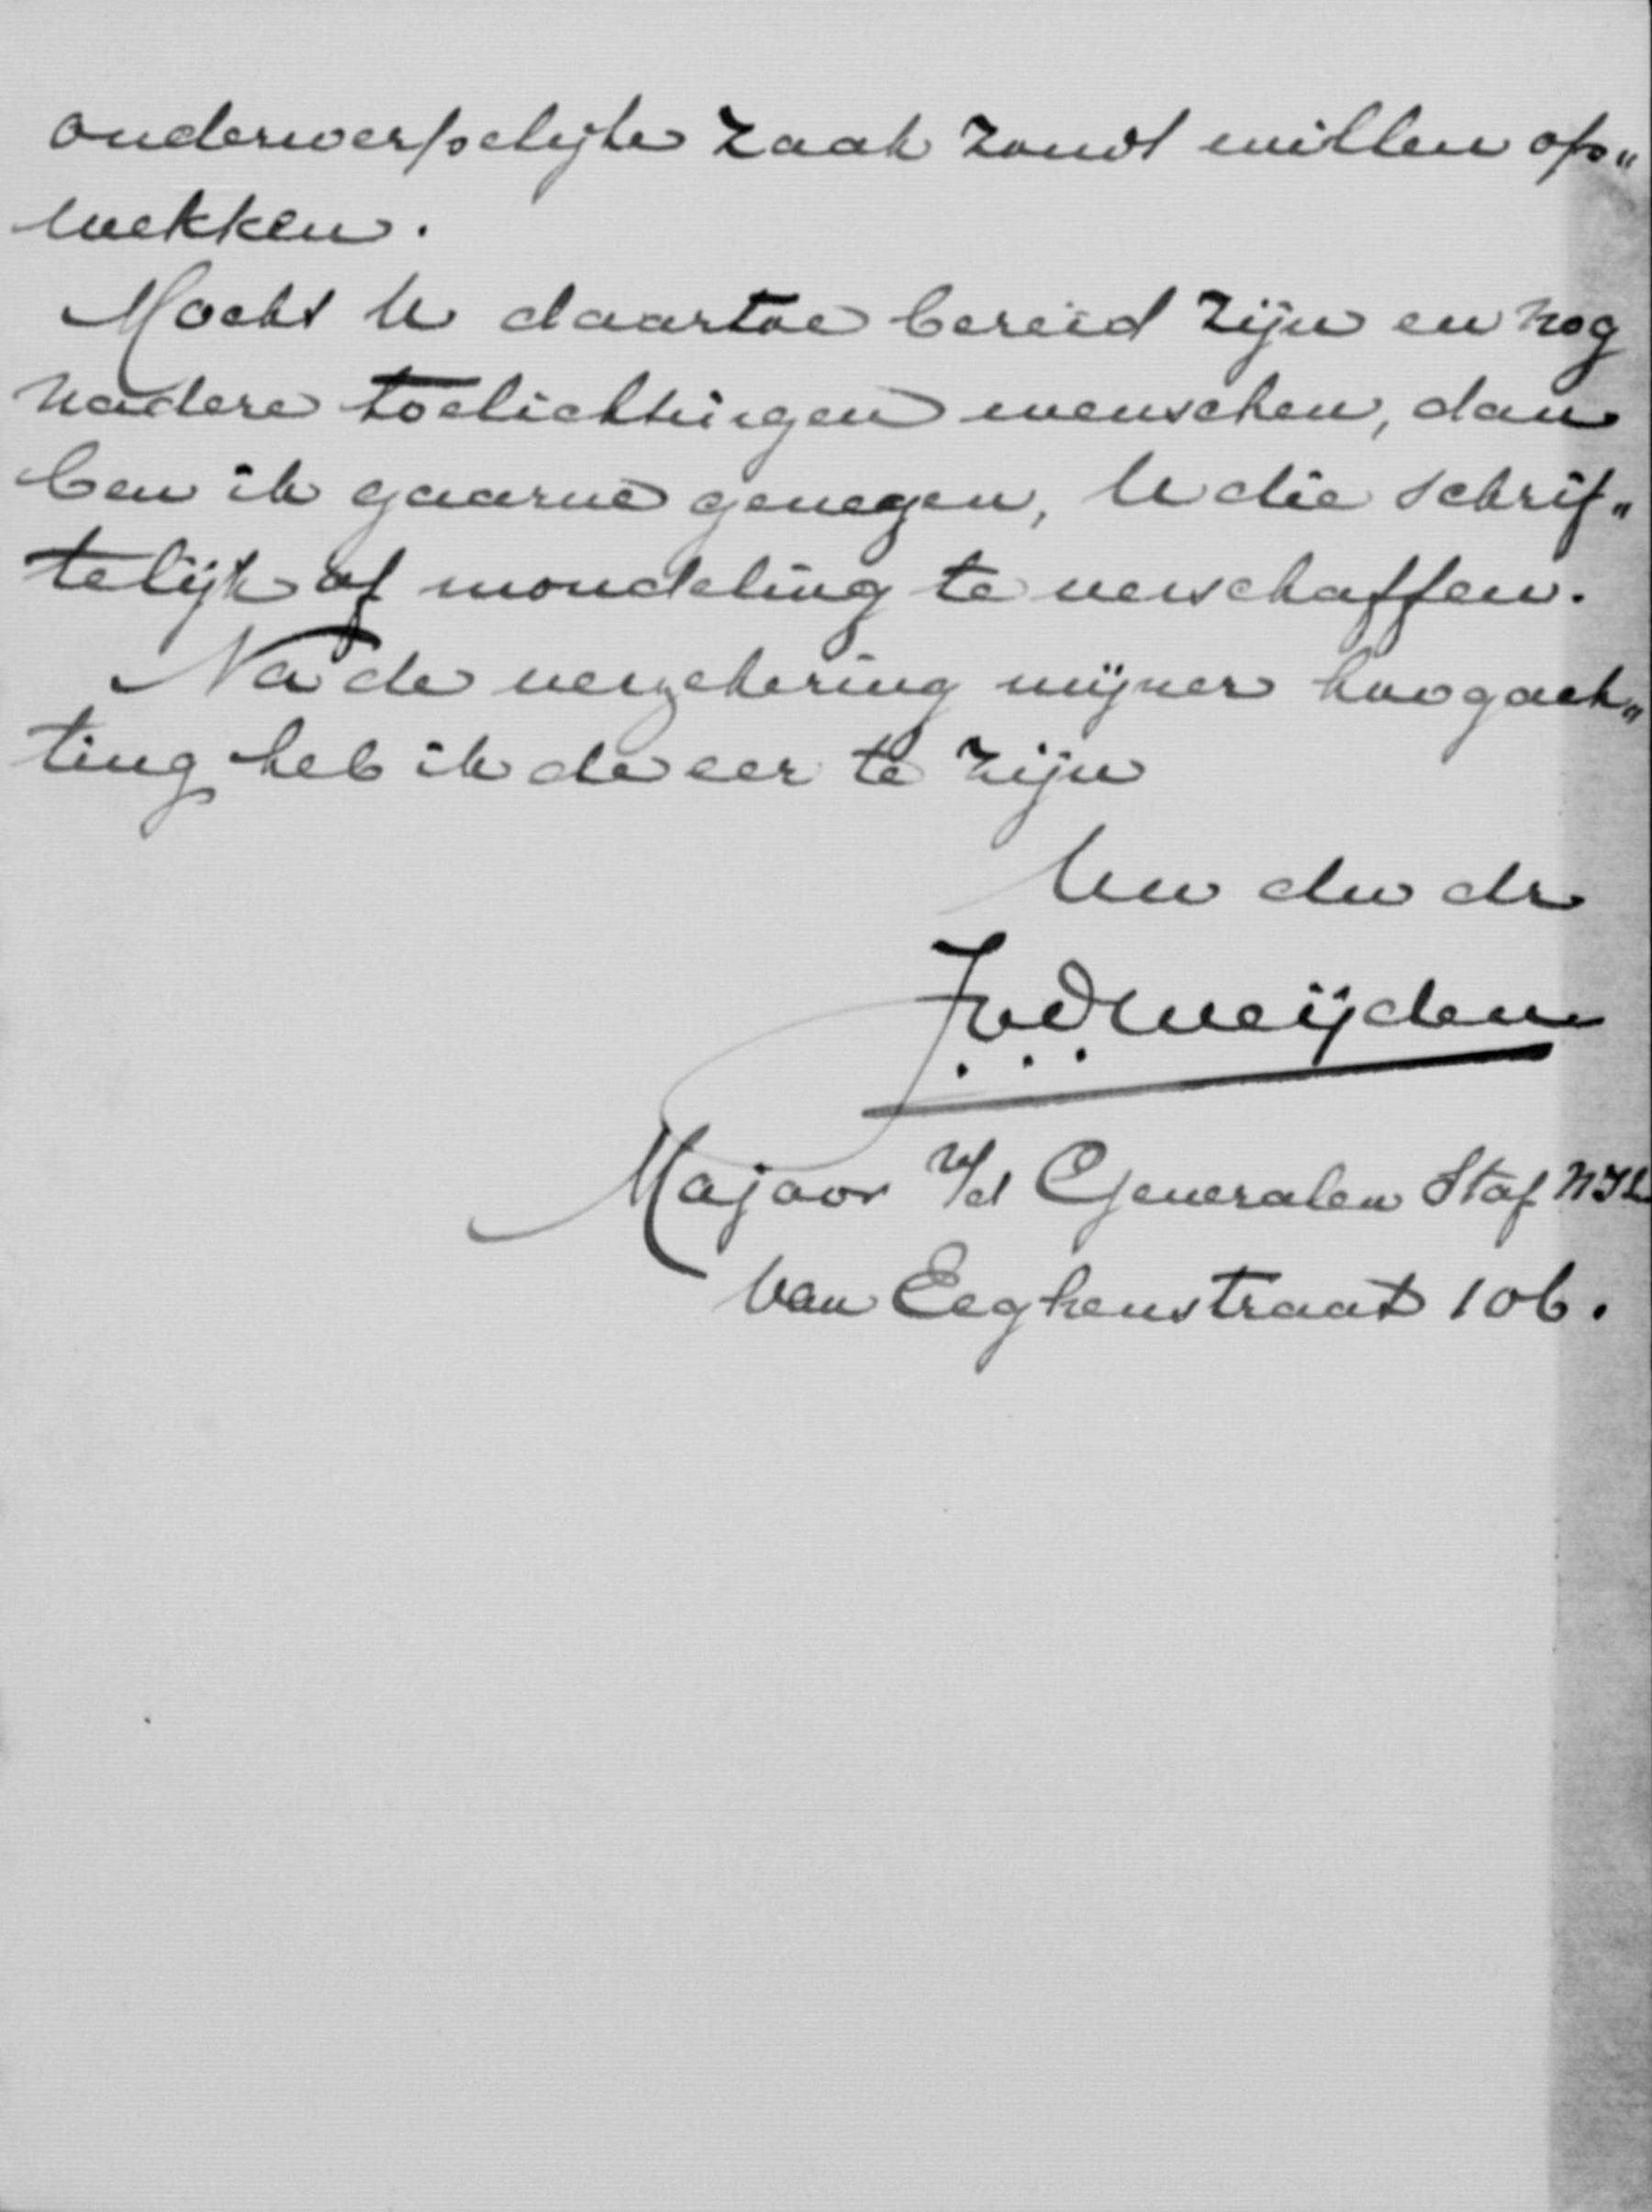 onderwerpelijke zaak zoudt willen op„
wekken.
Mocht U daartoe bereid zijn en nog
nadere toelichtingen wenschen, dan
ben ik gaarne genegen, U die schrif„
telijk of mondeling te verschaffen.
Na de verzekering mijner hoogach„
ting heb ik de eer te zijn
Uw dw dr
JvdWeijden
Majoor v/d Generalen Staf NIL
van Eeghenstraat 106.